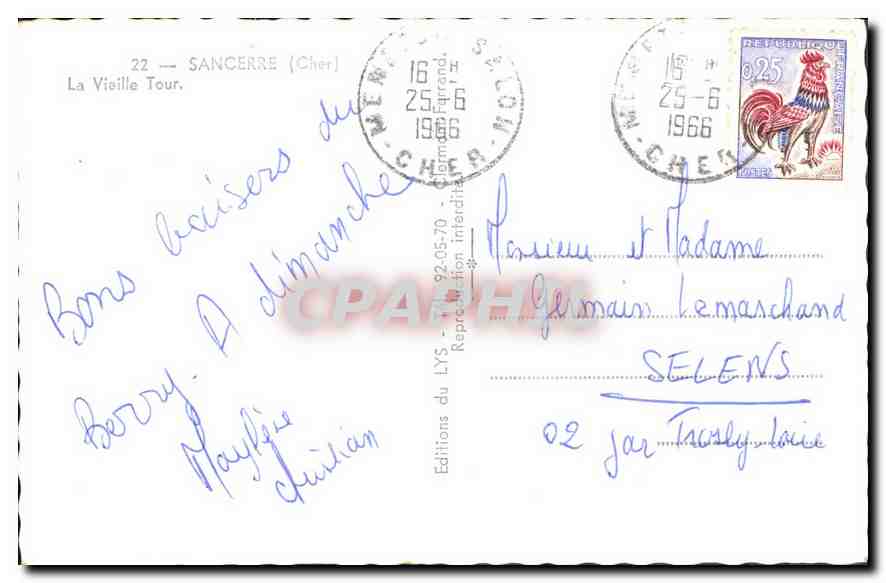 22 — SANCERRE (Cher)
La Vieille Tour.
Bons baisers du
Berry. A dimanche
Editions du LYS - Tél. 92-05-70 - Clermont-Ferrand.
Reproduction interdite
MENETOU SALON
16 H
25-6
1966
CHER
MENET
16 H
25-6
1966
CHER
REPUBLIQUE FRANÇAISE
0,25
POSTES
Monsieur et Madame
Germain Lemarchand
SELENS
02 par Trosly-Loire
CPAPHIL